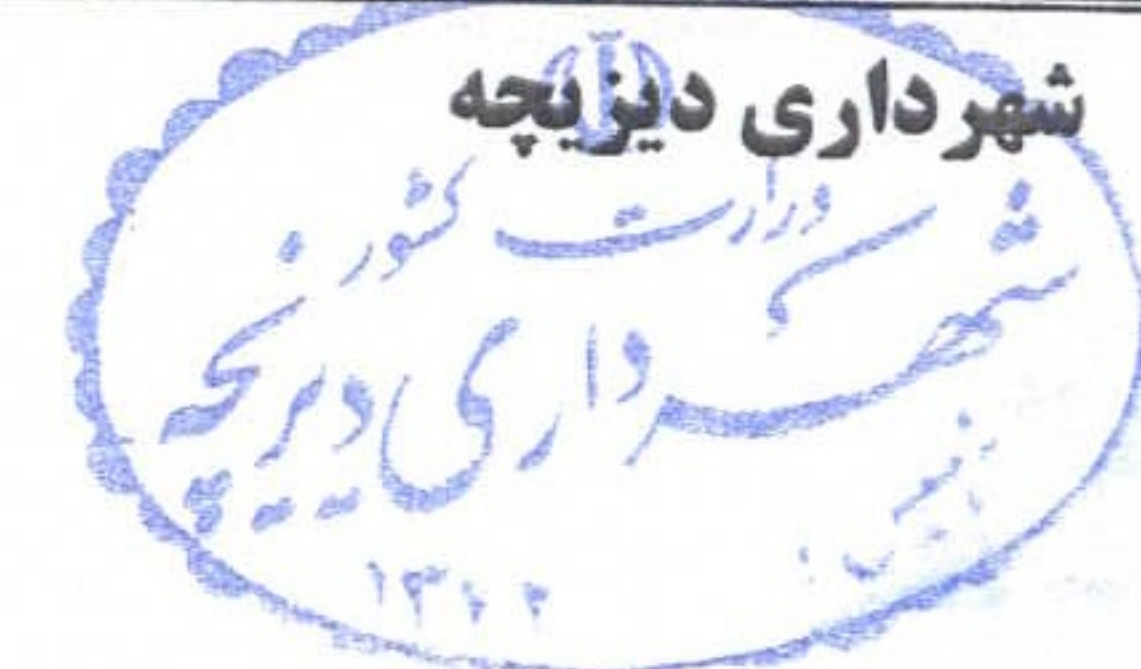 شهرداری دیزیچه
وزارت کشور
شهرداری دیزیچه